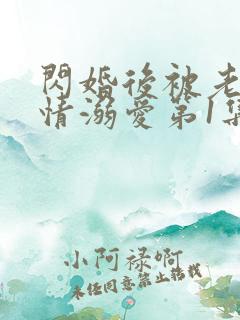 閃婚後被老
情溺愛第1集
小阿禄啊
未经同意禁止转载